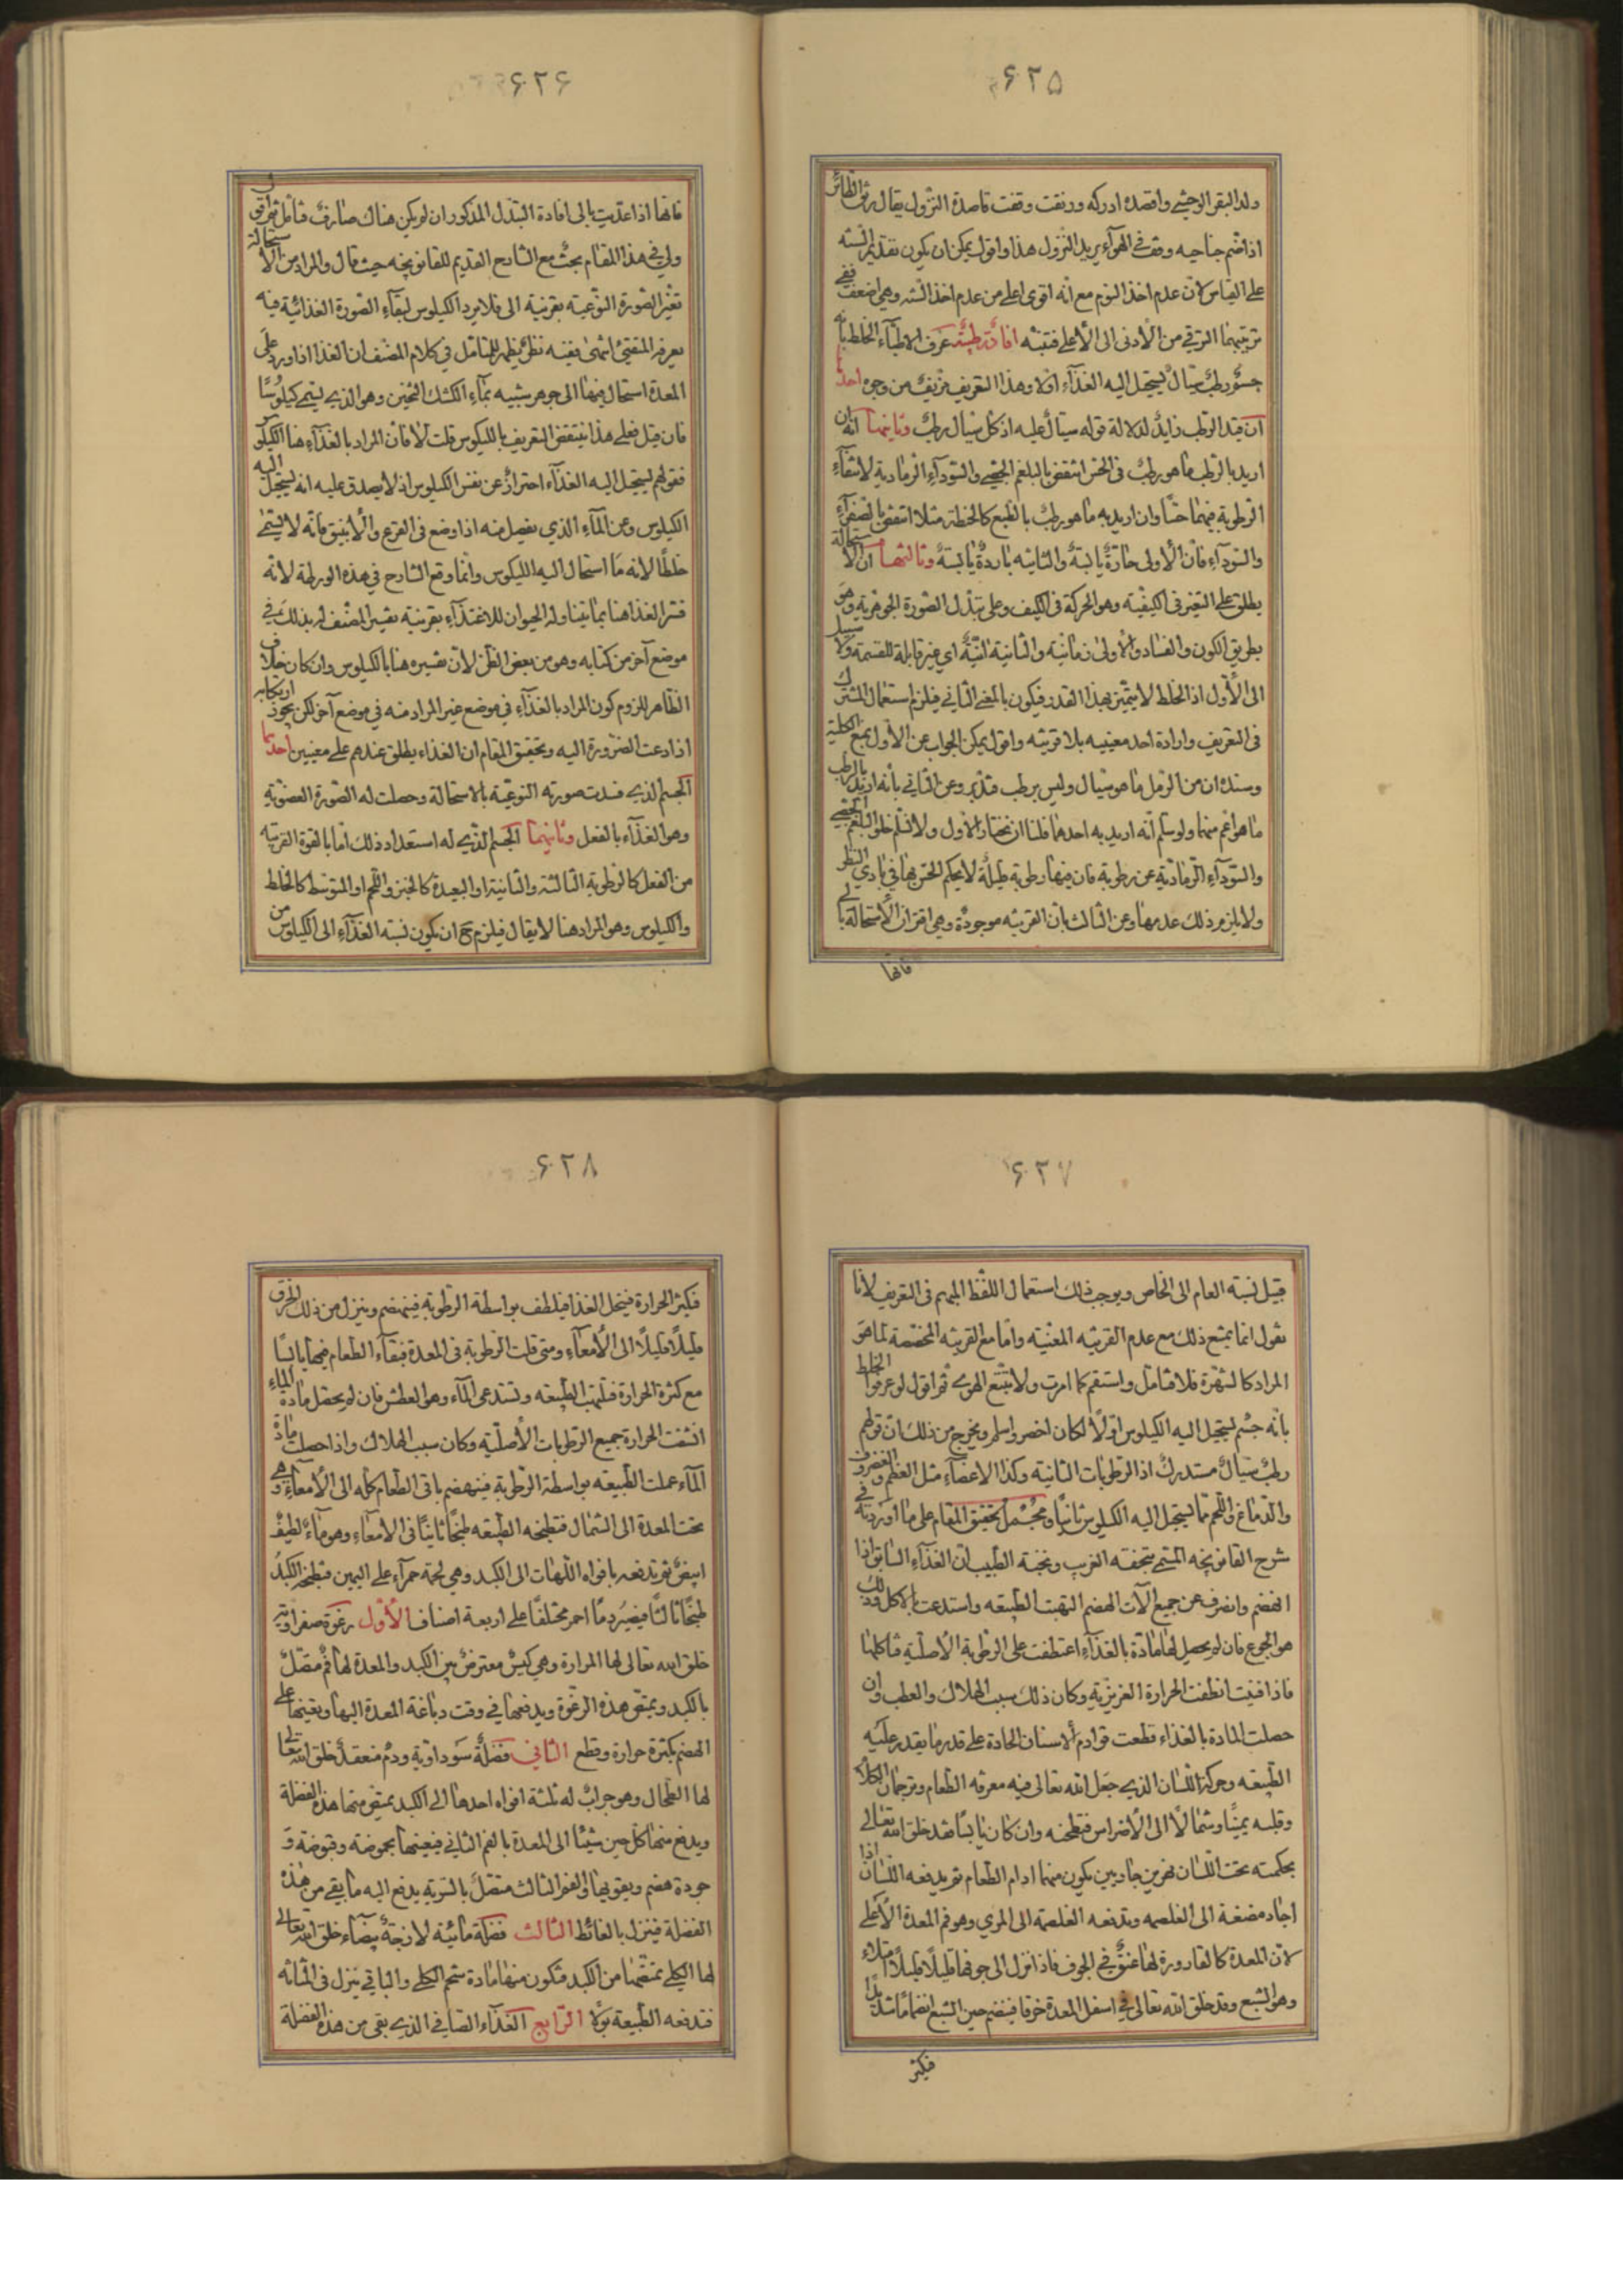 ۶۲۵
ولد البقر الوحشي واقصده ادركه ورنقت وقفت قاصدة النزول يقال رنق الطائر
اذا ضم جناحيه وقف في الهوآء يريد النزول هذا واقول يمكن ان يكون تقديم السنه
على القياس لان عدم اخذ النوم مع انه اقوى اعلى من عدم اخذ السنه وهي اضعف ففي
ترتيبهما الترقي من الأدنى الى الأعلى فتنبّه افادة طبيّة عرف الاطبّآء الخلط بأنه
جسم رطب سيّال يستحيل اليه الغذآء اوّلا وهذا التعريف مزيّف من وجوه احدها
ان قيد الرطب زايد لدلالة قوله سيّال عليه اذ كل سيّال رطب وثانيها انه ان
اريد بالرطب ما هو رطب في الحسّ انتقض بالبلغم الجصّي والسّودآء الرّمادية لانتفآء
الرطوبة فيهما حسًّا وان اريد به ما هو رطب بالطبع كالحنطة مثلا انتقض بالصفرآء
والسّودآء فانّ الأولى حارّة يابسة والثانيه باردة يابسة وثالثها ان الاستحالة
يطلق على التغيّر في الكيفيّة وهو الحركة في الكيف وعلى تبدّل الصّورة الجوهريه وهو
بطريق الكون والفساد والأولى زمانيّه والثانية انيّة اي غير قابلة للقسمة ولا سبيل
الى الأوّل اذ الخلط لا يتميّز بهذا القدر فيكون بالمعنى الثاني فيلزم استعمال المشترك
في التعريف وارادة احد معنييه بلا قرينه واقول يمكن الجواب عن الأول بمنع الكلية
وسنده ان من الرّمل ما هو سيّال وليس برطب فتدبّر وعن الثاني بأنه اريد بالرطب
ما هو اعم منهما ولو سلم انّه اريد به احدهما فلنا ان نختار الأول ولا نسلم خلوّ البلغم الجصّي
والسّودآء الرّماديّة عن رطوبة فان فيهما رطوبة قليلة لا يحكم الحسّ بها في بادي النظر
ولا يلزم من ذلك عدمها وعن الثالث بان القرينه موجودة وهي اقتران الأستحالة بالى
فانها
۶۲۶
فانها اذا عدّيت بالى افادة التبدّل المذكور ان لم يكن هناك صارف فتأمّل ثم اقول
ولي في هذا المقام بحث مع الشارح القديم للقانونچه حيث قال والمراد من الاستحالة
تغيّر الصّورة النّوعيه بقرنية الى فلا يرد الكيلوس لبقآء الصّورة الغذائيّة فيه
يعرفه المتفتّن انتهى وفيه نظر يظهر للمتأمّل في كلام المصنّف ان الغذا اذا ورد على
المعدة استحال فيها الى جوهر شبيه بمآء الكشك الثخين وهو الذي يسمّى كيلوسًا
فان قيل فعلى هذا ينتقض التعريف بالكيلوس قلت لا فانّ المراد بالغذآء هنا الكيلوس
فقولهم يستحيل اليه الغذآء احتراز عن نفس الكيلوس اذ لا يصدق عليه انه يستحيل اليه
الكيلوس وعن المآء الذي يفصل منه اذا وضع في القرع والأنبيق فانّه لا يسمّى
خلطًا لانه ما استحال اليه الكيلوس وانّما وقع الشارح في هذه الورطة لانه
فسّر الغذا هنا بما يتناوله الحيوان للاغتذآء بقرينة تفسير المصنّف له بذلك في
موضع آخر من كتابه وهو من بعض الظنّ لانّ تفسيره هنا بالكيلوس وان كان خلاف
الظاهر للزوم كون المراد بالغذآء في موضع غير المراد منه في موضع آخر لكن يجوز ارتكابه
اذا دعت الضّرورة اليه وتحقيق المقام ان الغذاء يطلق عندهم على معنيين احدهما
الجسم الذي فسدت صورته النوعيّة بالاستحالة وحصلت له الصّورة العضويّة
وهو الغذآء بالفعل وثانيهما الجسم الّذي له استعداد ذلك امّا بالقوة القريبه
من الفعل كالرّطوبة الثالثة والثانية او البعيدة كالخبز واللّحم او المتوسّط كالخلط
والكيلوس وهو المراد هنا لا يقال فيلزم ح ان يكون نسبة الغذآء الى الكيلوس من
۶۲۷
قبيل نسبة العام الى الخاص ويوجب ذلك استعمال اللفظ المبهم في التعريف لانّا
نقول انما يمتنع ذلك مع عدم القرينه المعيّنه وامّا مع القرينه المخصّصة لما هو
المراد كالشهرة فلا فتأمّل واستقم كما امرت ولا تتّبع الهوى ثم اقول لو عرفوا الخلط
بانّه جسم يستحيل اليه الكيلوس اوّلًا لكان اخصر واسلم ويخرج من ذلك انّ قولهم
رطب سيّال مستدرك اذ الرطوبات الثانية وكذا الاعضآء مثل العظم والغضروف
والدّماغ واللّحم ممّا يستحيل اليه الكيلوس ثانيًا ومجمل تحقيق المقام على ما اوردته في
شرح القانونچه المسمّى بتحفة الغريب ونخبة الطّبيب ان الغذآء السّابق اذا
انهضم وانصرف عن جميع آلات الهضم التهبت الطّبيعه واستدعت بالاكل وذلك
هو الجوع فان لم يحصل لها مادّة بالغذآء اعتطفت على الرطوبة الأصليّة فاكلتها
فاذا فنيت انطفت الحرارة الغريزيّه وكان ذلك سبب الهلاك والعطب وان
حصلت المادة بالغذاء قطعت قوادم الأسنان الحادة على قدر ما يقدر عليه
الطّبيعه وحركه اللّسان الذي جعل الله تعالى فيه معرفه الطّعام وترجمان الكلام
وقلبه يمينًا وشمالًا الى الأضراس فتطحنه وان كان يابسًا فقد خلق الله تعالى
بحكمته تحت اللّسان نهرين جاريين يكون منهما ادام الطّعام ثم يدفعه اللّسان اذا
اجاد مضغة الى الغلصمه وتدفعه الغلصمة الى المري وهو فم المعدة الأعلى
لانّ المعدة كالقارورة لها عنق في الجوف فاذا نزل الى جوفها قليلًا قليلًا امتلاء
وهو الشبع وقد خلق الله تعالى في اسفل المعدة خرقا فينضم حين الشبع انضمامًا شديدًا
فيكثر
۶۲۸
فيكثر الحرارة فينحل الغذا فيلطف بواسطة الرّطوبة فينهضم وينزل من ذلك الخرق
قليلًا قليلًا الى الأمعآء ومتى قلت الرّطوبة في المعدة فبقآء الطّعام فيها يابسًا
مع كثرة الحرارة فتلتهب الطّبيعه وتستدعي المآء وهو العطش فان لم يحصل مادة المآء
انشفت الحرارة جميع الرّطوبات الأصليّه وكان سبب الهلاك واذا حصلت مادّة
المآء عملت الطّبيعه بواسطة الرّطوبة فينهضم باقي الطّعام كله الى الأمعآء وهي
تحت المعدة الى الشمال فتطبخه الطّبيعه طبخًا ثانيًا في الامعآء وهو مآء لطيف
ابيض ثم تدفعه بافواه اللّهات الى الكبد وهي لحمة حمرآء على اليمين فتطبخه الكبد
طبخًا ثالثًا فيصير دمًا احمر مختلفًا على اربعة اصناف الأوّل رغوة صفراويّة
خلق الله تعالى لها المرارة وهي كيس معترض بين الكبد والمعدة لها فم متصل
بالكبد ويمتصّ هذه الرّغوة ويدفعها في وقت دباغة المعدة اليها وتعينها على
الهضم بكثرة حرارة وقطع الثاني فضلة سوداويّة ودم منعقد خلق الله تعالى
لها الطّحال وهو جراب له ثلثة افواه احدها الى الكبد يمتصّ منها هذه الفضلة
ويدفع منها كل حين شيئا الى المعدة بالفم الثاني فيعينها بحموضته وقبوضته و
جودة هضم ويقويها والفم الثالث متصل بالسّربه يدفع اليه ما بقي من هذه
الفضلة فينزل بالغائط الثالث فضلة مائيّة لا زبحة بيضآء خلق الله تعالى
لها الكلى تمتصّها من الكبد فتكون منها مادة شحم الكلى والباقي ينزل في المثانه
فتدفعه الطّبيعة بولًا الرّابع الغذآء الصّافي الذي بقي من هذه الفضلة